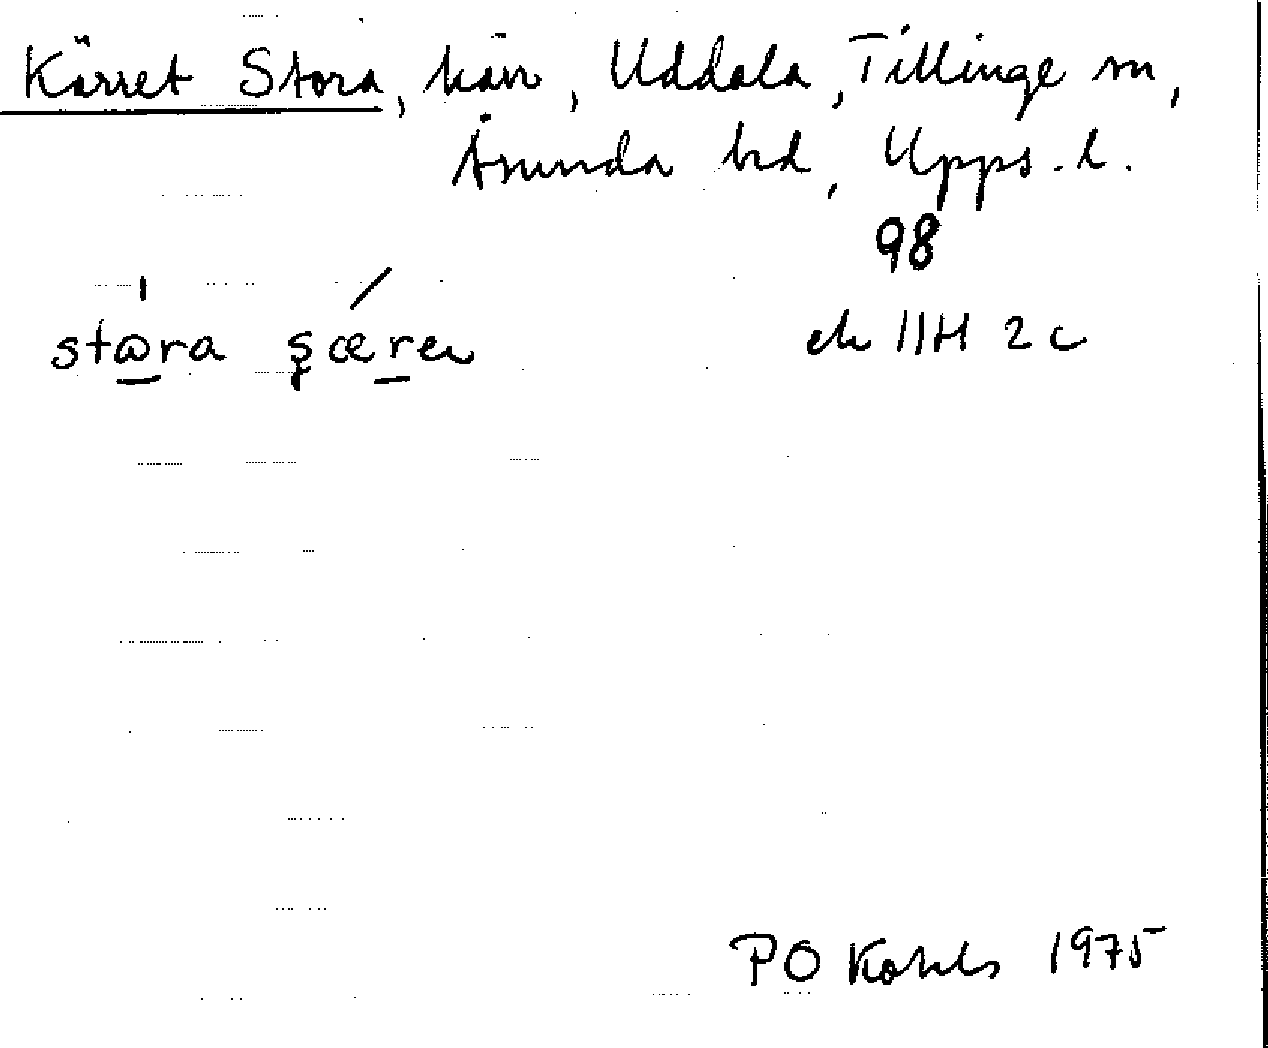 Kärret Stora, kärr, Uddala, Tillinge sn,
Åsunda hd, Upps. l.
98
stɷra şæreν ek 11H 2c
PO Kohls 1975